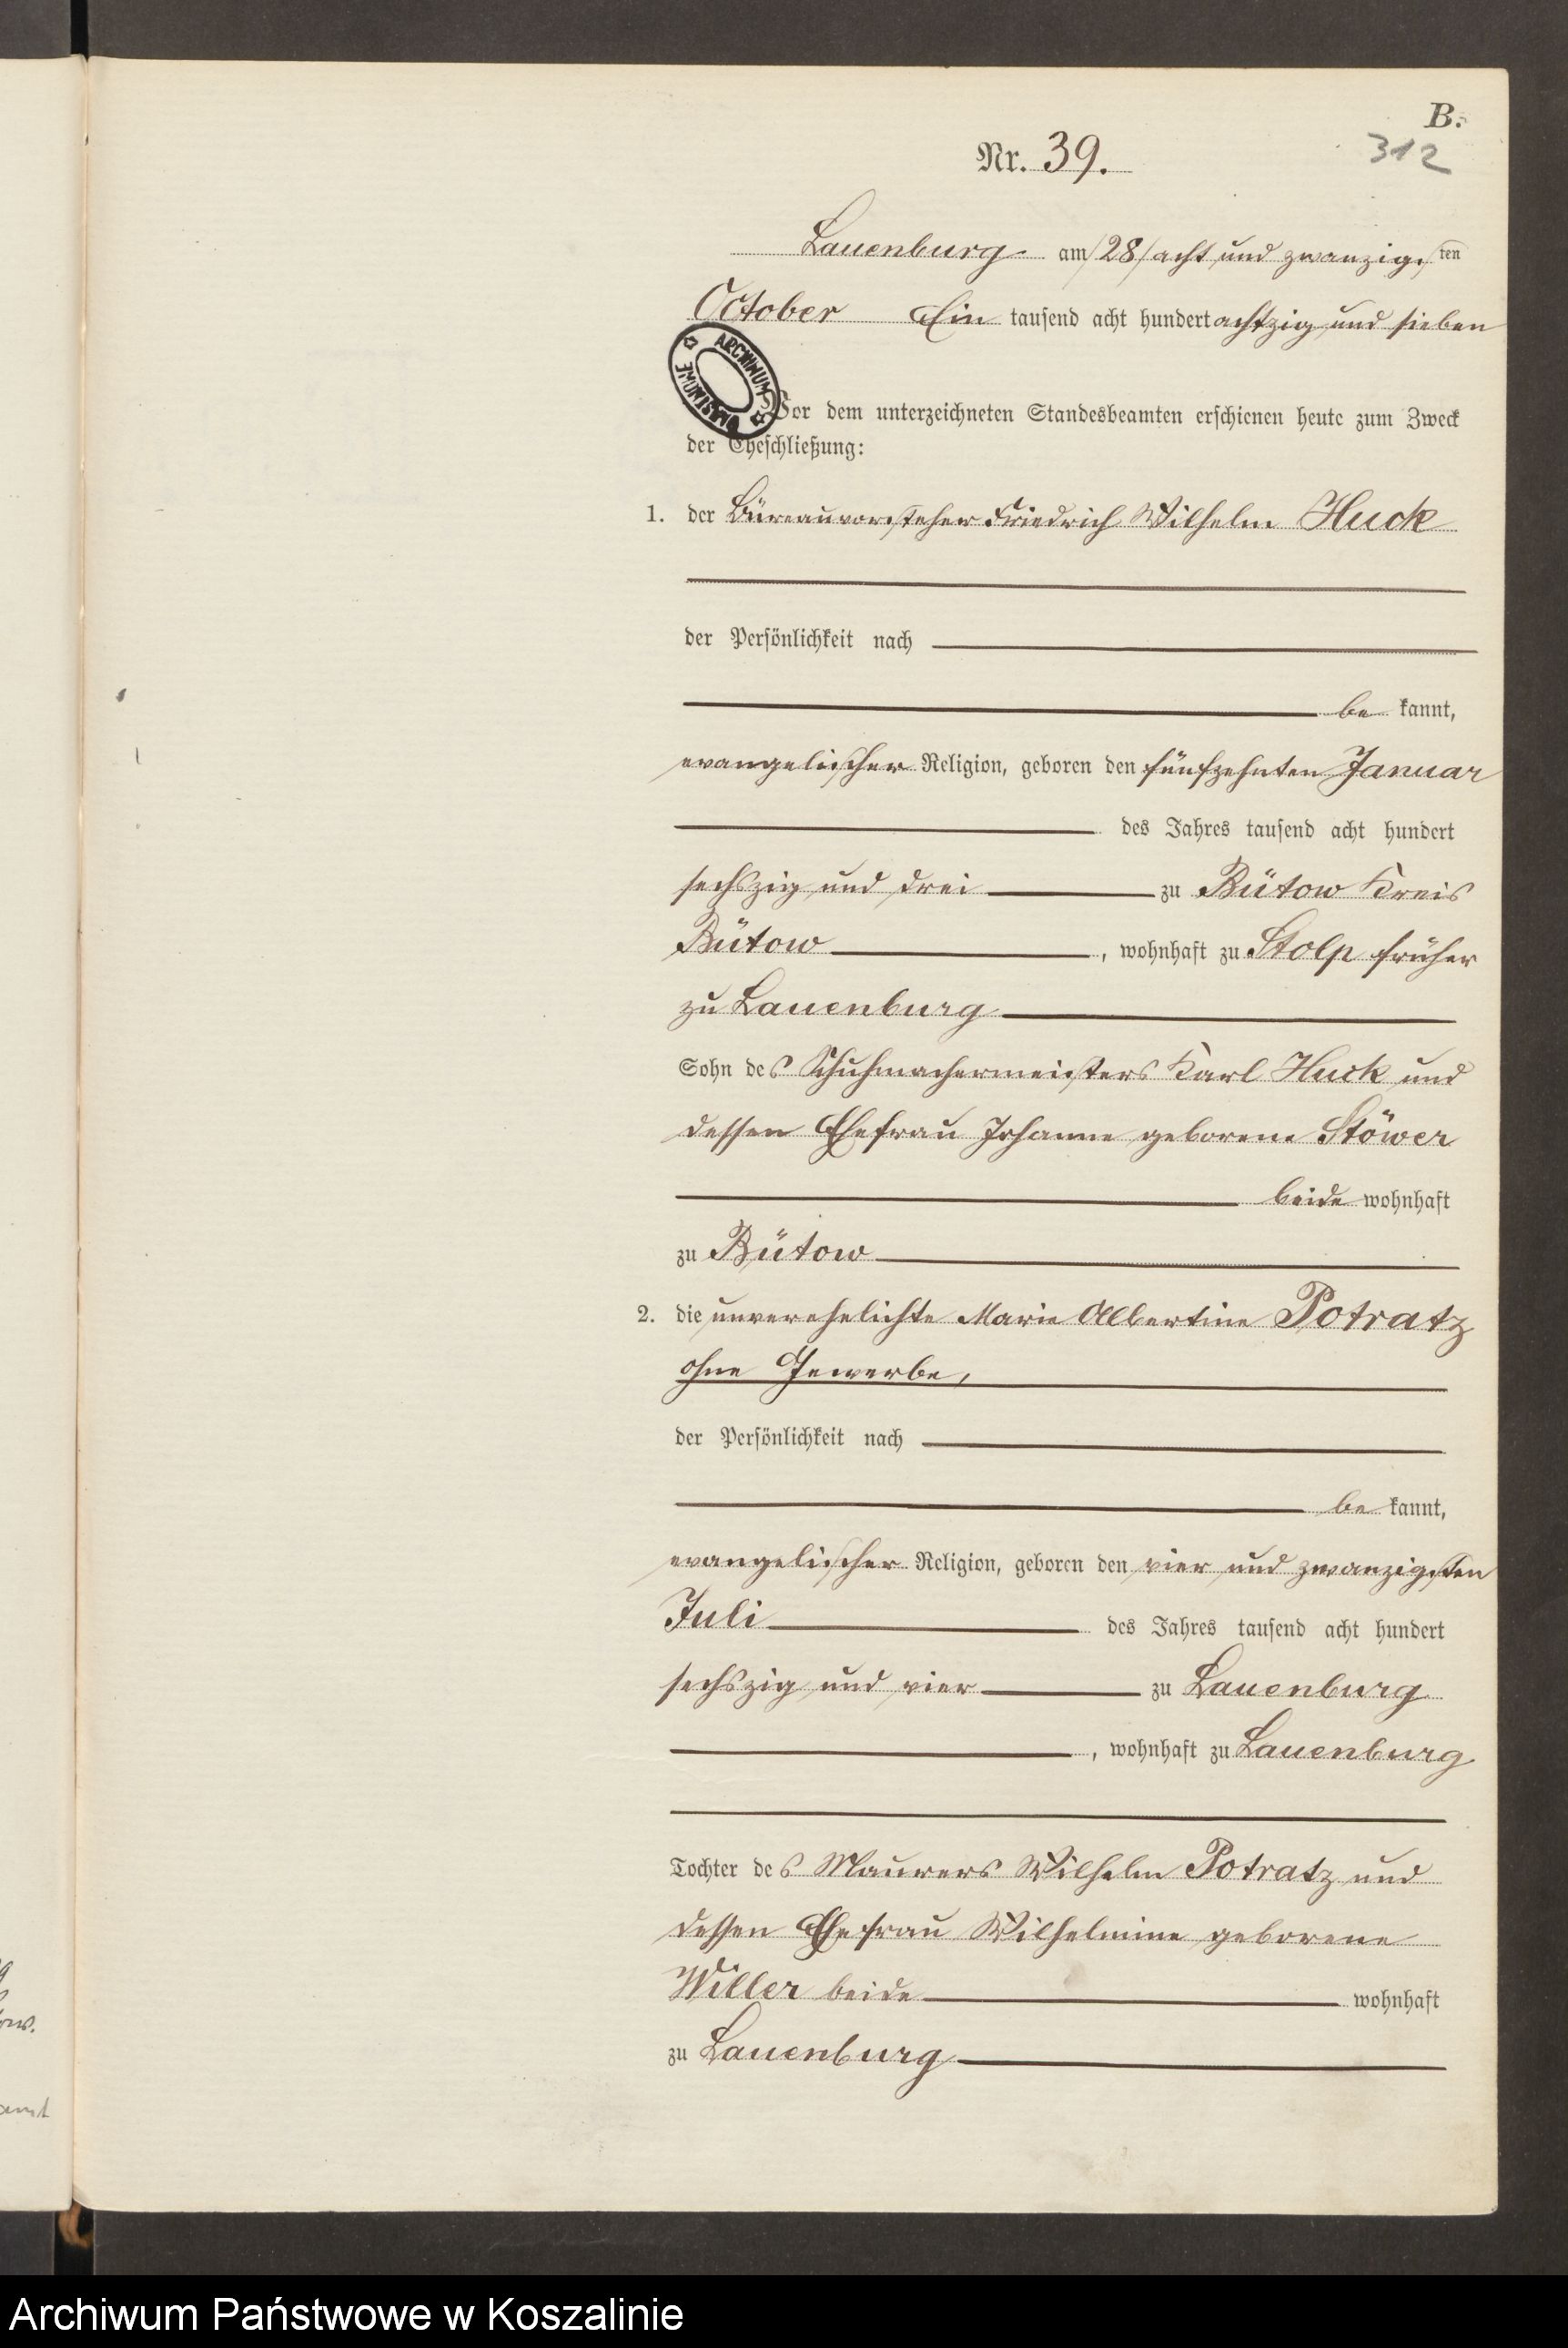 B.
Nr. 39.
312
Lauenburg am /28/ acht und zwanzigsten
October Ein tausend acht hundert achtzig und sieben
ARCHIWUM
Vor dem unterzeichneten Standesbeamten erschienen heute zum Zweck
der Eheschließung:
1. der Büreauvorsteher Friedrich Wilhelm Huck
der Persönlichkeit nach
be kannt,
evangelischer Religion, geboren den fünfzehnten Januar
des Jahres tausend acht hundert
sechszig und drei zu Bütow Kreis
Bütow, wohnhaft zu Stolp früher
zu Lauenburg
Sohn des Schuhmachermeisters Karl Huck und
dessen Ehefrau Johanne geborene Stöwer
beide wohnhaft
zu Bütow
2. die unverehelichte Marie Albertine Potratz
ohne Gewerbe,
der Persönlichkeit nach
be kannt,
evangelischer Religion, geboren den vier und zwanzigsten
Juli des Jahres tausend acht hundert
sechszig und vier zu Lauenburg
, wohnhaft zu Lauenburg
Tochter des Maurers Wilhelm Potratz und
dessen Ehefrau Wilhelmine geborene
Willer beide wohnhaft
zu Lauenburg
amt
Archiwum Państwowe w Koszalinie